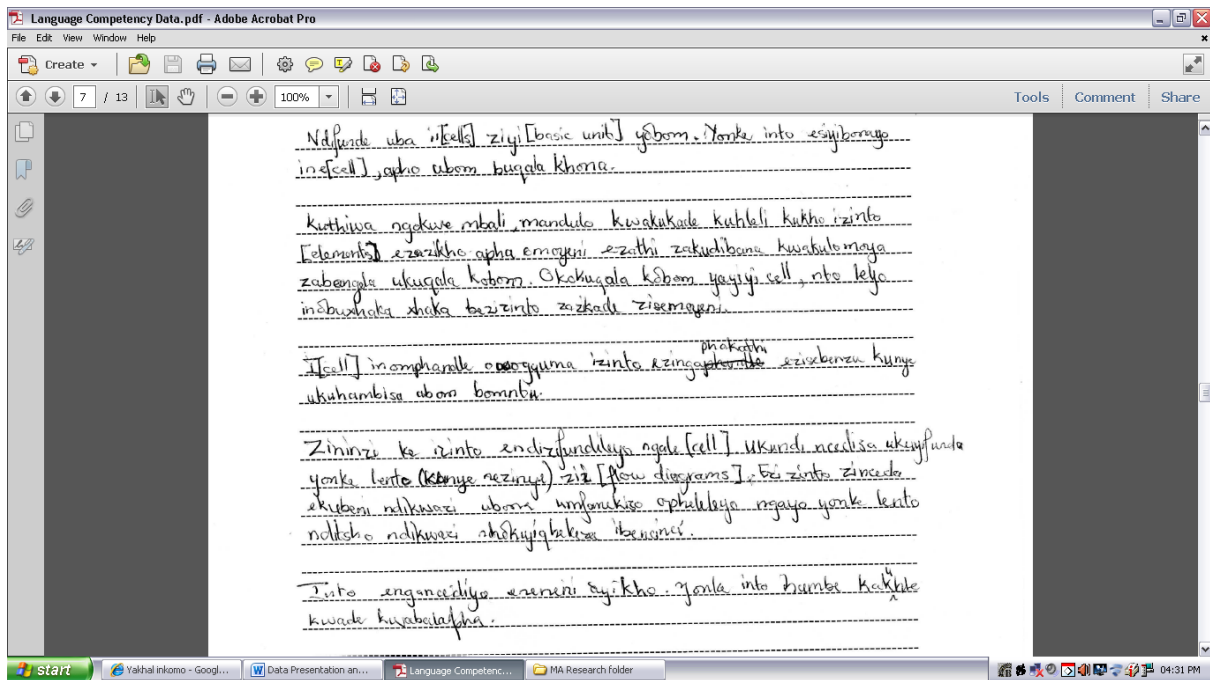 Language Competency Data.pdf - Adobe Acrobat Pro
File Edit View Window Help
Create
7 / 13 100% Tools Comment Share
Ndifunde uba ii[cells] ziyi [basic unit] yobom. Yonke into esiyibonayo
ine[cell], apho ubom buqala khona.
Kuthiwa ngokwe mbali, mandulo kwakukade kuhleli kukho izinto
[elements] ezazikho apha emoyeni ezathi zakudibana kwakulomoya
zabangela ukuqala kobom. Okokuqala kobom yayiyi cell, nto leyo
inobushaka shaka bezizinto zazikade zisemoyeni.
I[cell] inomphandle ogquma izinto ezingaphakathi ezisebenza kunye
ukuhambisa ubom bomntu.
Zininzi ke izinto endizifundileyo ngale [cell] ukundi ncedisa ukuyifunda
yonke lento (kunye nezinye) zii [flow diagrams]. Ezi zinto zinceda
ekubeni ndikwazi ubona umfanekiso opheleleyo ngayo yonke lento
nditsho ndikwazi shokuyiqhekeza ibencinci.
Into engancediyo eneneni ayikho. Yonla into hambe kakuhle
kwade kwabalapha.
start Yakhal inkomo - Googl... Data Presentation an... Language Competenc... MA Research folder 04:31 PM